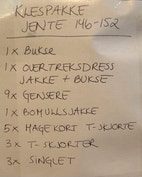 KLESPAKKE
JENTE 146-152
1x BUKSE
1x OVERTREKSDRESS
JAKKE + BUKSE
9x GENSERE
1x BOMULLSJAKKE
5x MAGEKORT T-SKJORTE
3x T-SKJORTER
3x SINGLET